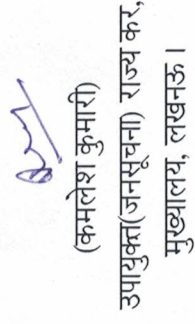 (कमलेश कुमारी)
उपायुक्त(जनसूचना) राज्य कर,
मुख्यालय, लखनऊ।